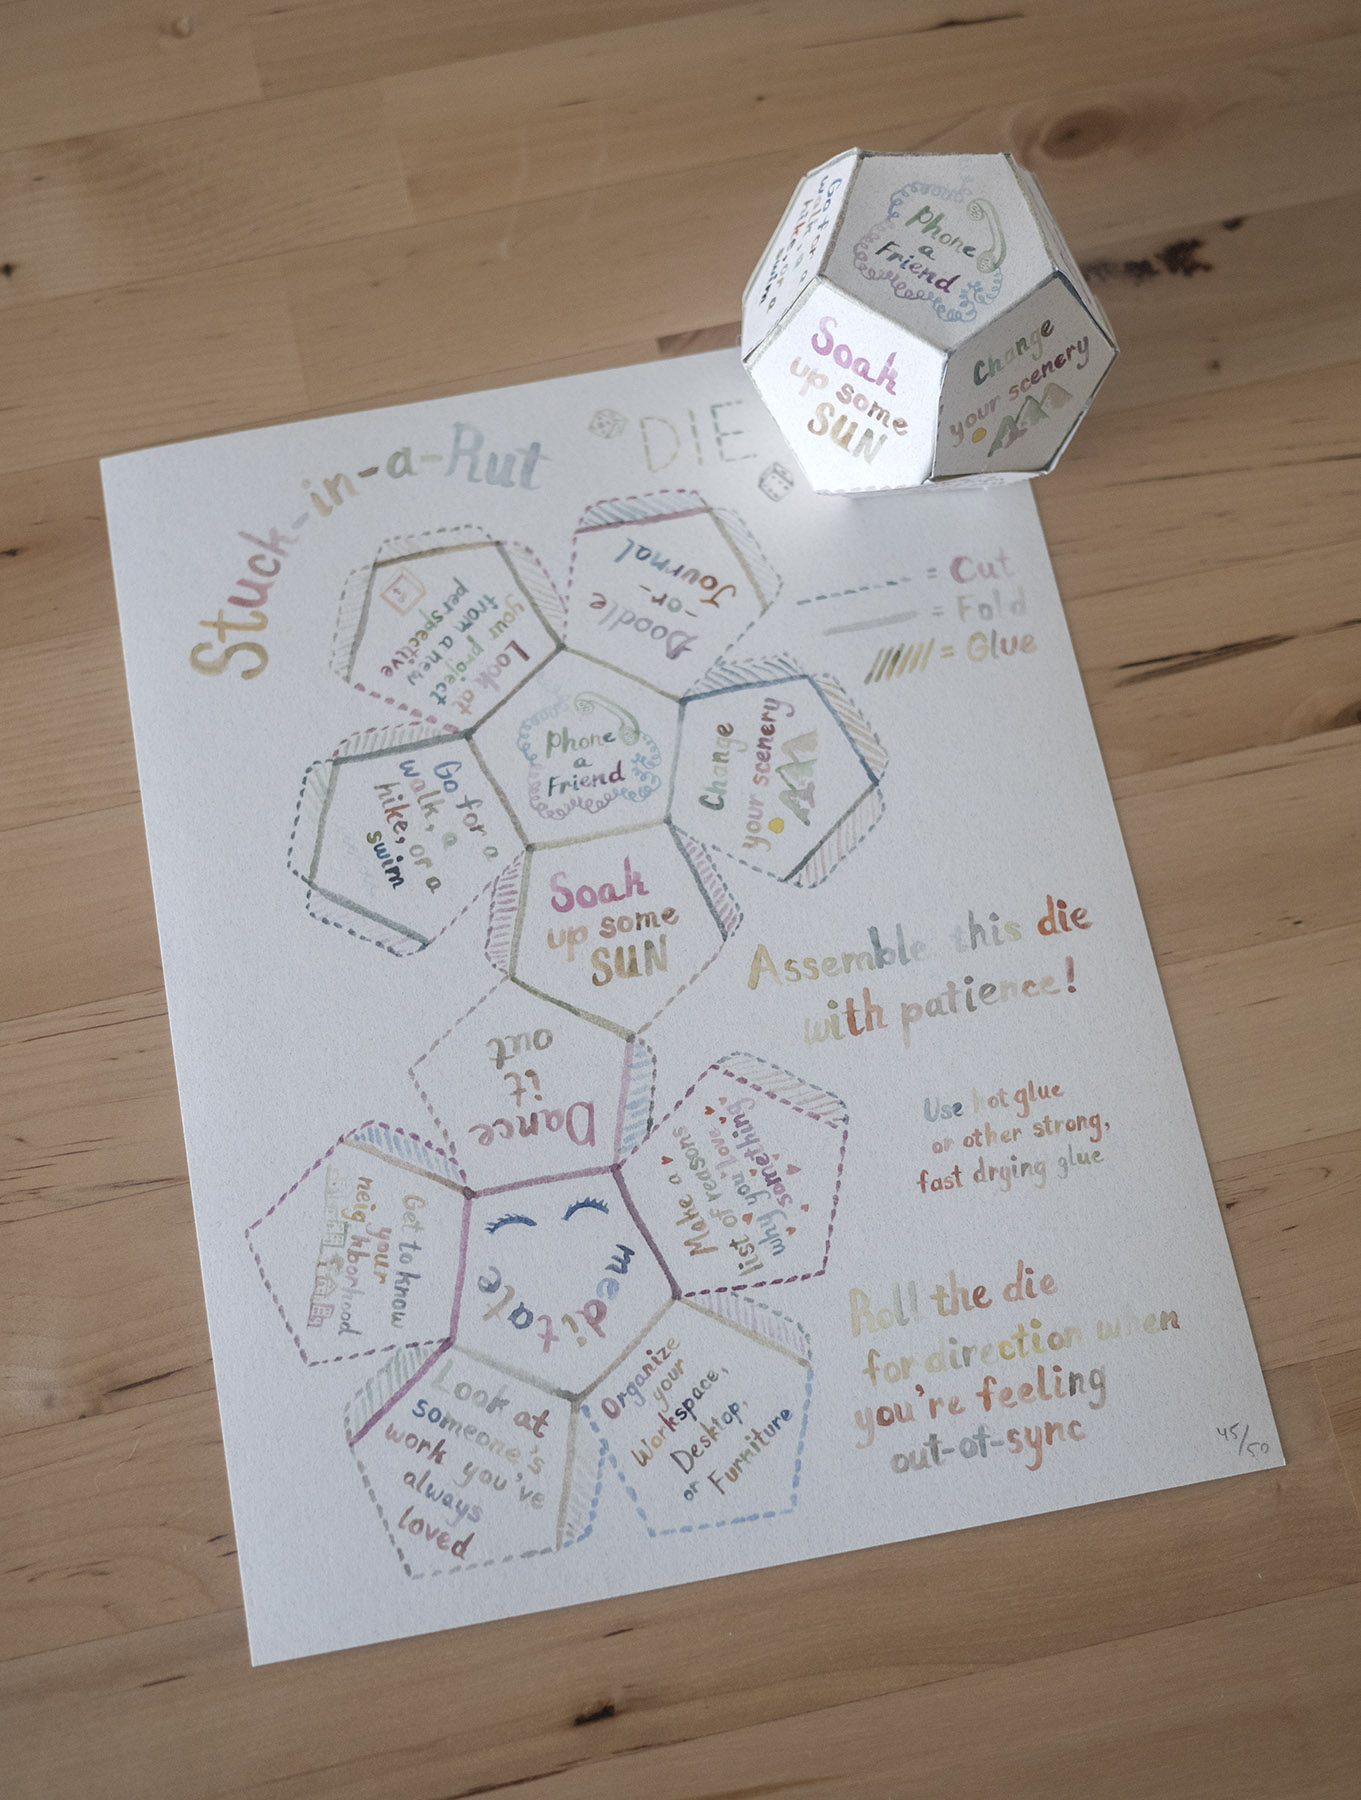 Go for a
walk, a
hike, or a
swim
Phone
a
Friend
Soak
up some
SUN
Change
your scenery
Stuck-in-a-Rut
DIE
= Cut
= Fold
= Glue
Look at
your project
from a new
perspective
Doodle
-or-
Journal
Phone
a
Friend
Change
your scenery
Go for a
walk, a
hike, or a
swim
Soak
up some
SUN
Assemble this die
with patience!
Dance
it
out
Use hot glue
or other strong,
fast drying glue
Make a
list of reasons
why you love
something
Get to know
your
neighborhood
meditate
Organize
your
Workspace,
Desktop,
or Furniture
Look at
someone's
work you've
always
loved
Roll the die
for direction when
you're feeling
out-of-sync
45/50